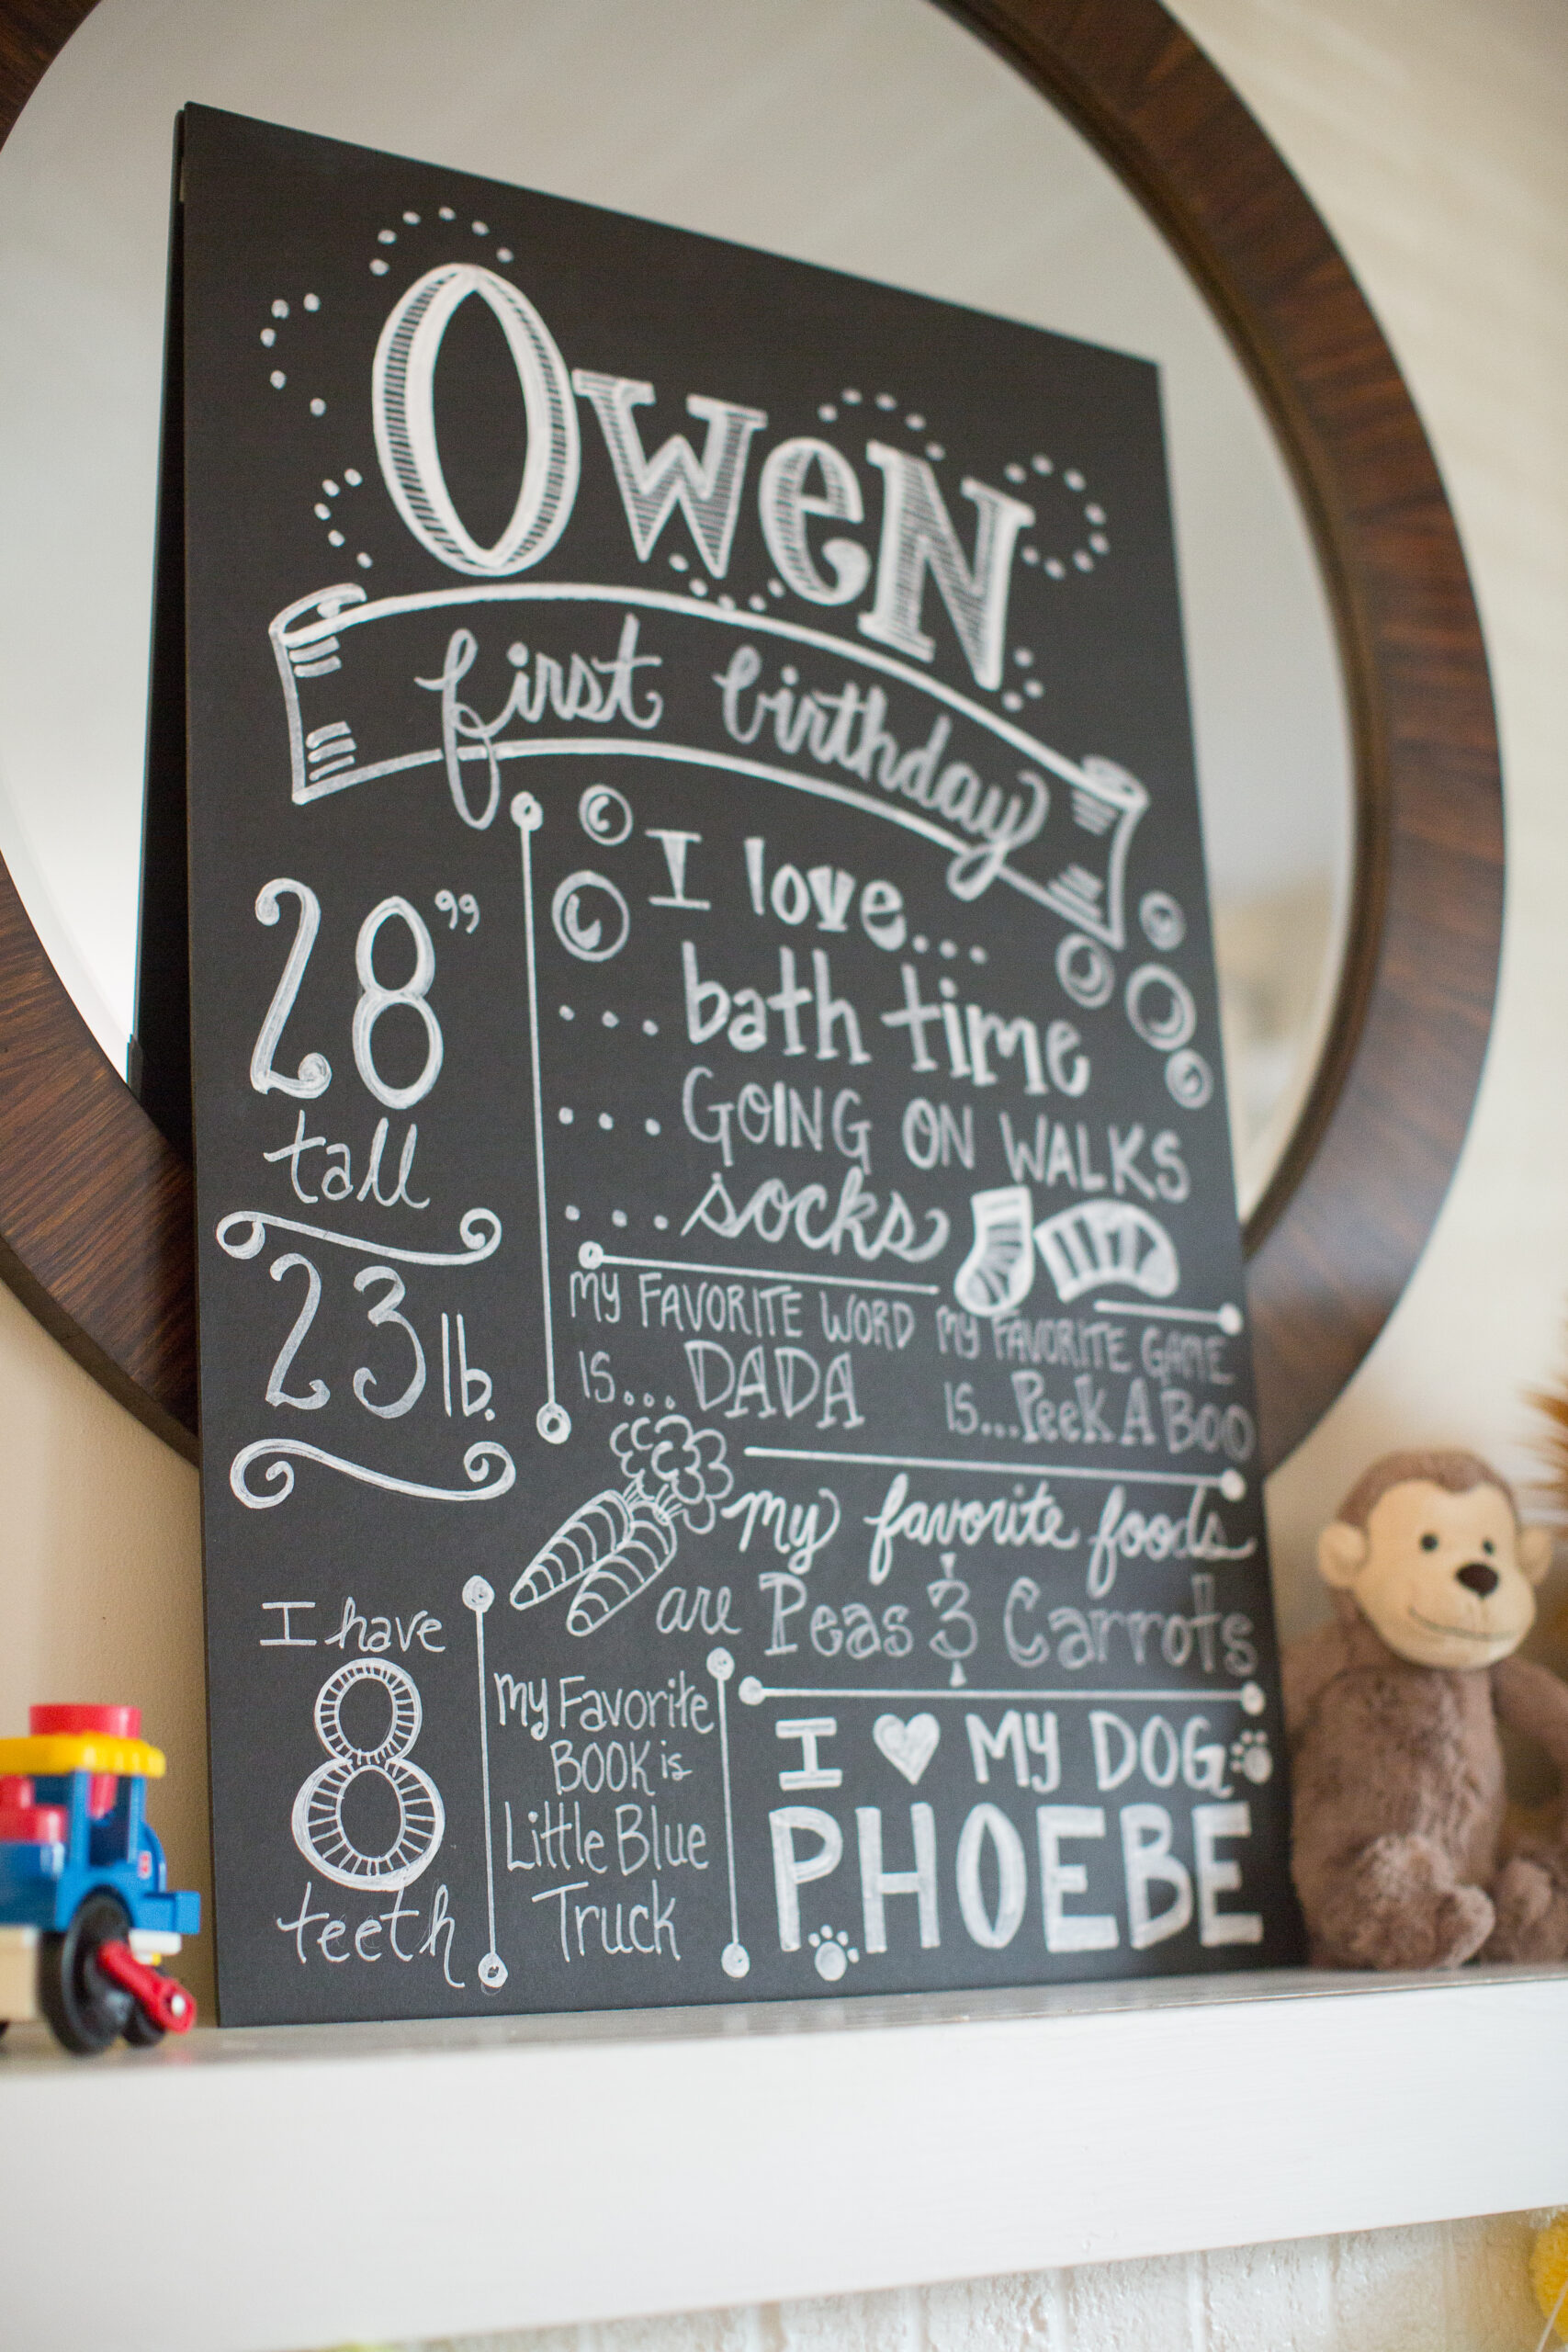 Owen
first birthday
28”
tall
23 lb.
I love...
... bath time
... GOING ON WALKS
... socks
MY FAVORITE WORD
IS... DADA
MY FAVORITE GAME
IS... Peek A Boo
my favorite foods
are Peas & Carrots
I have
8
teeth
My Favorite
BOOK is
Little Blue
Truck
I ♥ MY DOG
PHOEBE